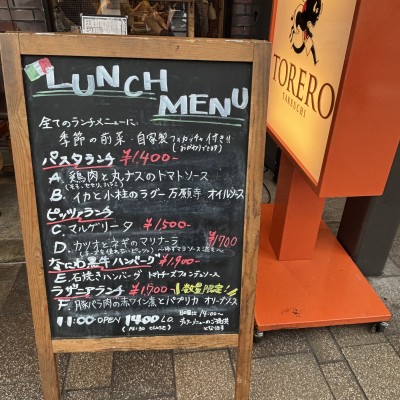 LUNCH
MENU
全てのランチメニューに、
季節の前菜・自家製フォカッチャ付き!!
(おかわりできます)
パスタランチ ¥1,400-
A. 鶏肉と丸ナスのトマトソース
B. イカと小柱のラグー 万願寺 オイルソース
ピッツァランチ
C. マルゲリータ ¥1500-
D. カツオとネギのマリナーラ ¥1700
なにわ黒牛ハンバーグ ¥1,900-
E. 石焼きハンバーグ トマトチーズフォンデュソース
ラザニアランチ ¥1,700- 数量限定!
F. 豚バラ肉の赤ワイン煮とパプリカ オリーブソース
11:00 OPEN 14:00 L.O.
(15:30 CLOSE)
TORERO
TAKEUCHI